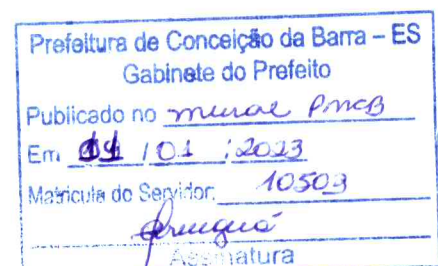 Prefeitura de Conceição da Barra – ES
Gabinete do Prefeito
Publicado no mural PMCB
Em / 01 / 2023
Matrícula do Servidor: 10503
Assinatura